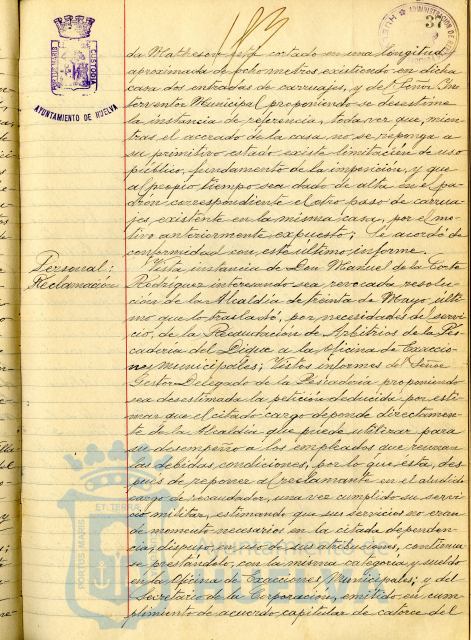 183
37
AYUNTAMIENTO DE HUELVA
da Matheson está cortado en una longitud
aproximada de ocho metros existiendo en dicha
casa dos entradas de carruajes, y del Señor In-
terventor Municipal proponiendo se desestime
la instancia de referencia, toda vez que, mien-
tras el acerado de la casa no se reponga a
su primitivo estado existe limitación de uso
público, fundamento de la imposición, y que
al propio tiempo sea dado de alta en el pa-
drón correspondiente el otro paso de carrua-
jes existente en la misma casa, por el mo-
tivo anteriormente expuesto; Se acordó de
conformidad con este último informe.
Personal:
Reclamación
Vista instancia de Don Manuel de la Corte
Rodríguez interesando sea revocada resolu-
ción de la Alcaldía de treinta de Mayo últi-
mo que lo trasladó, por necesidades del servi-
cio, de la Recaudación de Arbitrios de la Pes-
cadería del Dique a la Oficina de Exaccio-
nes Municipales; Vistos informes del Señor
Gestor Delegado de la Pescadería proponiendo
sea desestimada la petición deducida por esti-
mar que el citado cargo depende directamen-
te de la Alcaldía que puede utilizar para
su desempeño a los empleados que reunan
las debidas condiciones, por lo que esta, des-
pués de reponer al reclamante en el aludido
cargo de recaudador, una vez cumplido su servi-
cio militar, estimando que sus servicios no eran
de momento necesarios en la citada dependen-
cia, dispuso, en uso de sus atribuciones, continua-
se prestándolo, con la misma categoría y sueldo
en la Oficina de Exacciones Municipales; y del
Secretario de la Corporación, emitido en cum-
plimiento de acuerdo capitular de catorce del
Ayuntamiento de
HUELVA